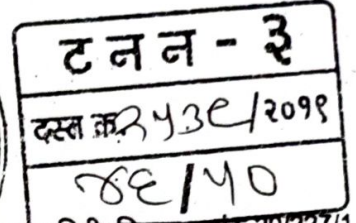 टनन - ३
दस्त क्र.२५३९/२०१९
४६/५०